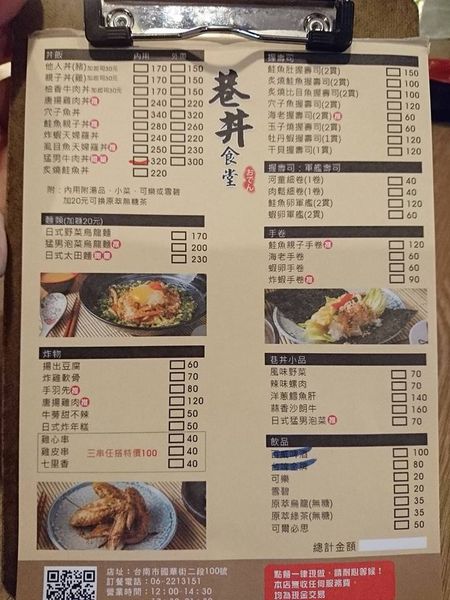 丼飯 內用 外帶
他人丼(豬)加起司30元 170 150
親子丼(雞)加起司30元 170 150
柚香牛肉丼加起司30元 170 150
唐揚雞肉丼推 240 220
穴子魚丼 240 220
鮭魚親子丼推 240 220
炸蝦天婦羅丼 240 220
虱目魚天婦羅丼推 250 230
猛男牛肉丼 320 300
炙燒鮭魚丼 320 300
附：內用附湯品、小菜、可樂或雪碧
加20元可換原萃無糖茶
麵類(加麵20元)
日式野菜烏龍麵 170
猛男泡菜烏龍麵推 200
日式太田麵 230
炸物
揚出豆腐 60
炸雞軟骨 70
手羽先推 80
唐揚雞肉推 120
牛蒡甜不辣 50
日式炸年糕 50
雞心串 40
雞皮串 40
七里香 40
三串任搭特價100
巷丼
食堂
おでん
握壽司
鮭魚肚握壽司(2貫) 150
炙燒鮭魚握壽司(2貫) 120
炙燒比目魚握壽司(2貫) 100
穴子魚握壽司(2貫) 120
海老握壽司(2貫)推 60
玉子燒握壽司(2貫) 60
牡丹蝦握壽司(1貫) 60
干貝握壽司(1貫) 60
握壽司：軍艦壽司
河童細卷(1卷) 40
肉鬆細卷(1卷) 40
鮭魚卵軍艦(2貫) 120
蝦卵軍艦(2貫) 60
手卷
鮭魚親子手卷推 120
海老手卷 60
蝦卵手卷 60
炸蝦手卷推 90
巷丼小品
風味野菜 70
辣味螺肉 70
洋蔥鱈魚肝 140
蒜香沙朗牛 160
日式猛男泡菜推 70
飲品
100
80
可樂 20
雪碧 20
原萃烏龍(無糖) 35
原萃綠茶(無糖) 35
可爾必思 50
總計金額
店址：台南市國華街二段100號
訂餐電話：06-2213151
營業時間：12:00-14:30
點餐一律現做，請耐心等候！
本店無收任何服務費，
均為現金交易